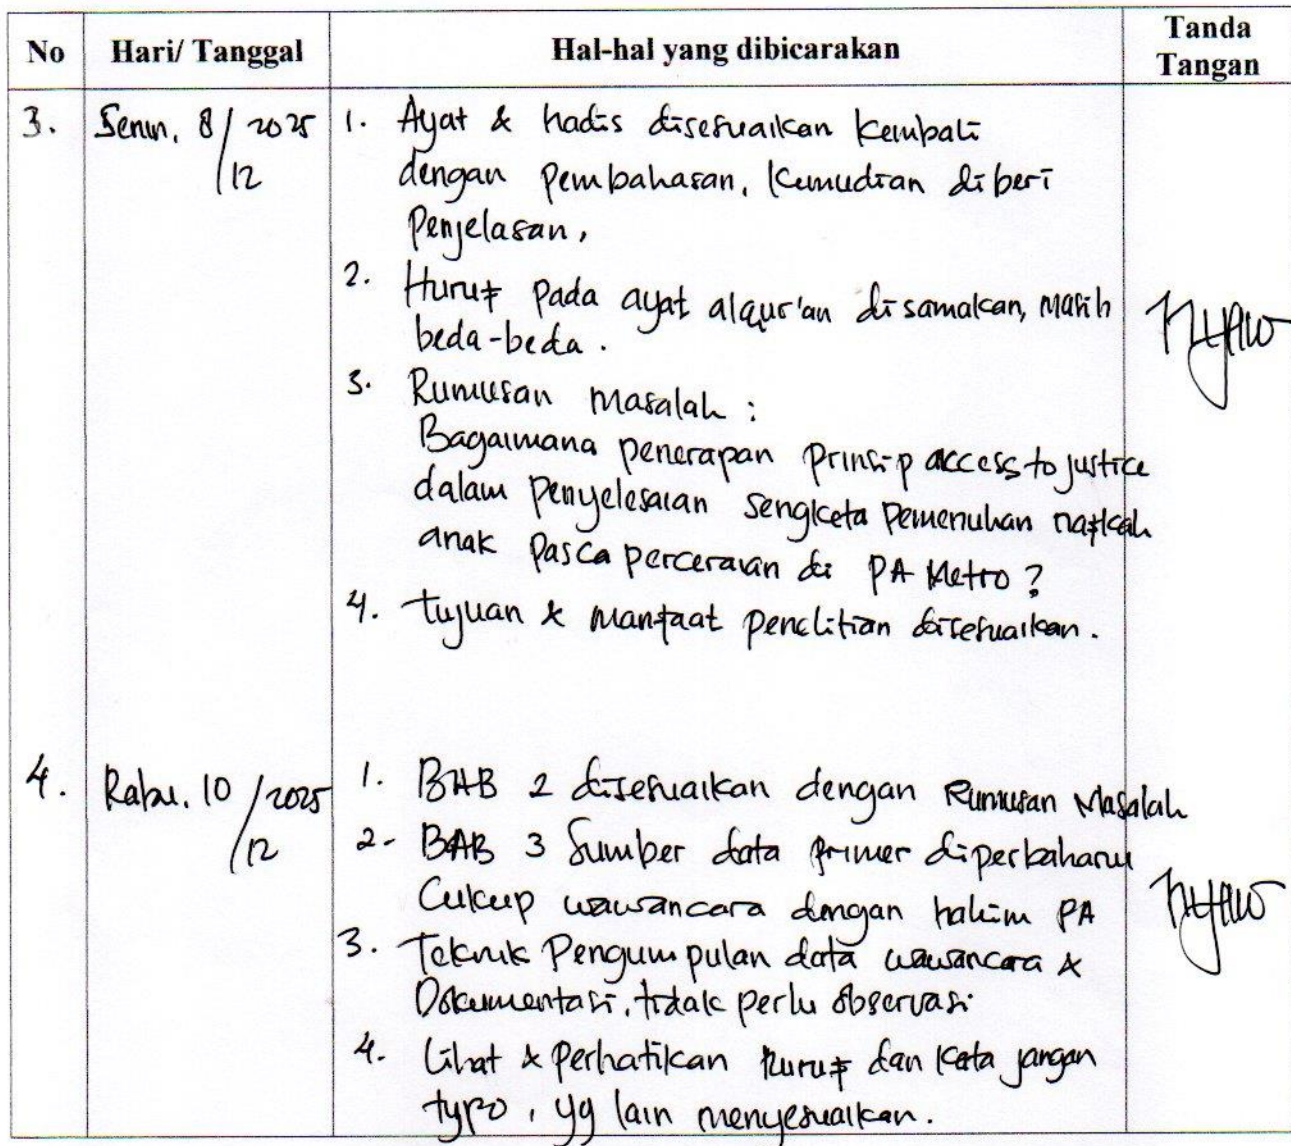 No Hari/ Tanggal Hal-hal yang dibicarakan Tanda Tangan
3. Senin, 8/12 2025
1. Ayat & hadis disesuaikan kembali
dengan pembahasan, kemudian diberi
Penjelasan,
2. Huruf pada ayat alqur'an disamakan, masih
beda-beda.
3. Rumusan Masalah :
Bagaimana penerapan prinsip access to justice
dalam penyelesaian sengketa pemenuhan nafkah
anak pasca perceraian di PA Metro?
4. tujuan & manfaat penelitian disesuaikan.
4. Rabu, 10/12 2025
1. BAB 2 disesuaikan dengan Rumusan Masalah
2- BAB 3 Sumber data primer diperbaharui
Cukup wawancara dengan hakim PA
3. Teknik Pengumpulan data wawancara &
Dokumentasi, tidak perlu observasi
4. Lihat & Perhatikan huruf dan kata jangan
typo, yg lain menyesuaikan.